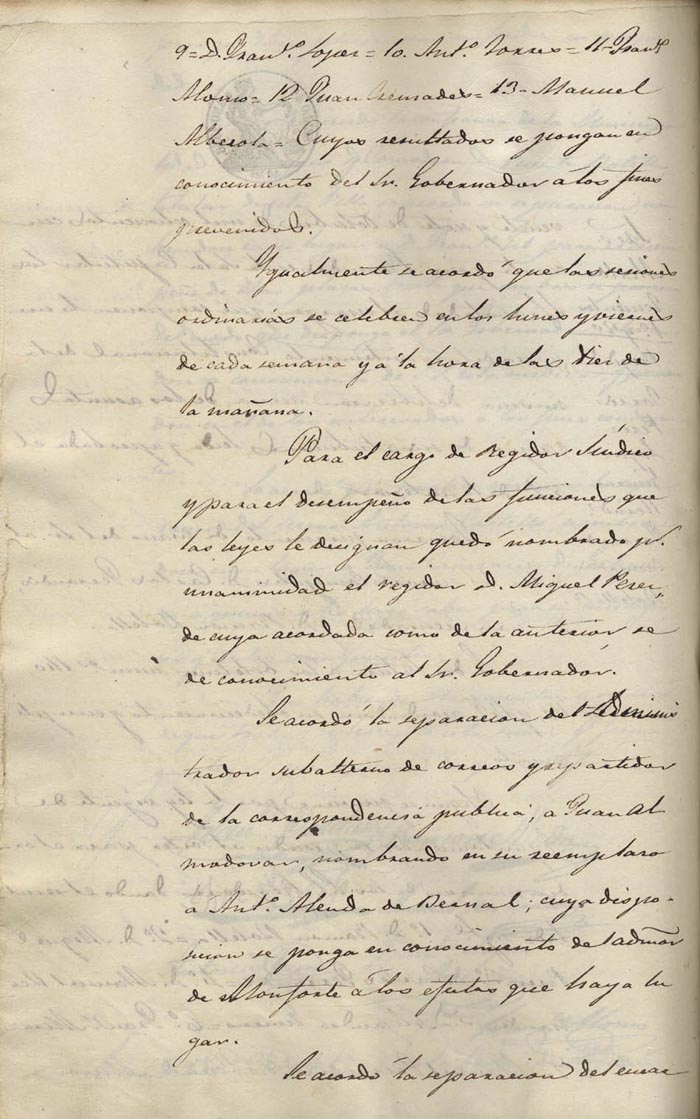 9= D. Fran.co Lopez= 10. Ant.o Torres= 11- Fran.co
Alonso= 12 Juan Cremades= 13- Manuel
Alberola= Cuyos resultados se pongan en
conocimiento del Sr. Gobernador á los fines
prevenidos.
Ygualmente se acordó que las sesiones
ordinarias se celebren en los lunes y viernes
de cada semana y á la hora de las diez de
la mañana.
Para el cargo de Regidor Síndico
y para el desempeño de las funciones que
las leyes le designan quedó nombrado pr.
unanimidad el regidor D. Miguel Perez,
de cuya acordada como de la anterior se
de conocimiento al Sr. Gobernador.
Se acordó la separacion del Adminis
trador subalterno de correos y repartidor
de la correspondencia publica, a Juan Al
modovar, nombrando en su reemplazo
a Ant.o Alenda de Bernal; cuya dispo-
sicion se ponga en conocimiento del admor
de Monforte á los efectos que haya lu
gar.
Se acordó la separacion del encar